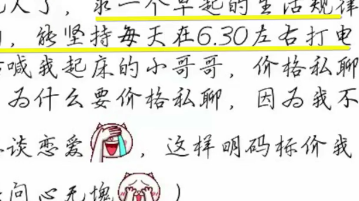 人了，求一个早起的生活规律
，能坚持每天在6.30左右打电
喊我起床的小哥哥，价格私聊
为什么要价格私聊，因为我不
谈恋爱，这样明码标价我
问心无愧）